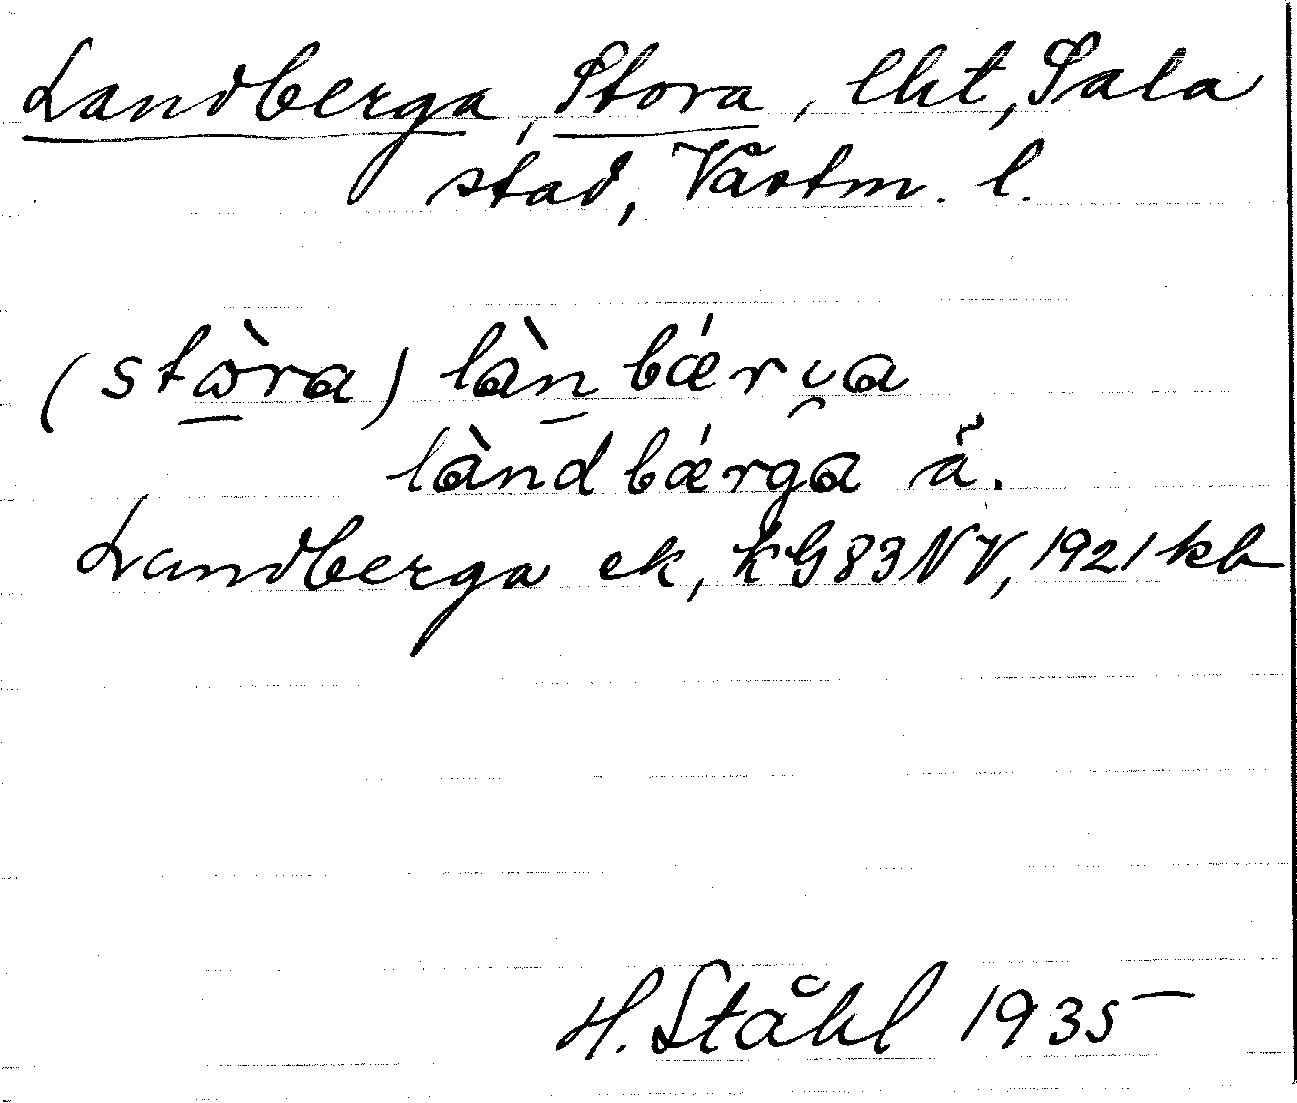 Landberga, Stora, lht, Sala
stad, Västm. l.
(stɷ̀ra) làn bǽrɥa
làndbǽrga ä.
Landberga ek, kG83NV, 1921 kb
H. Ståhl 1935